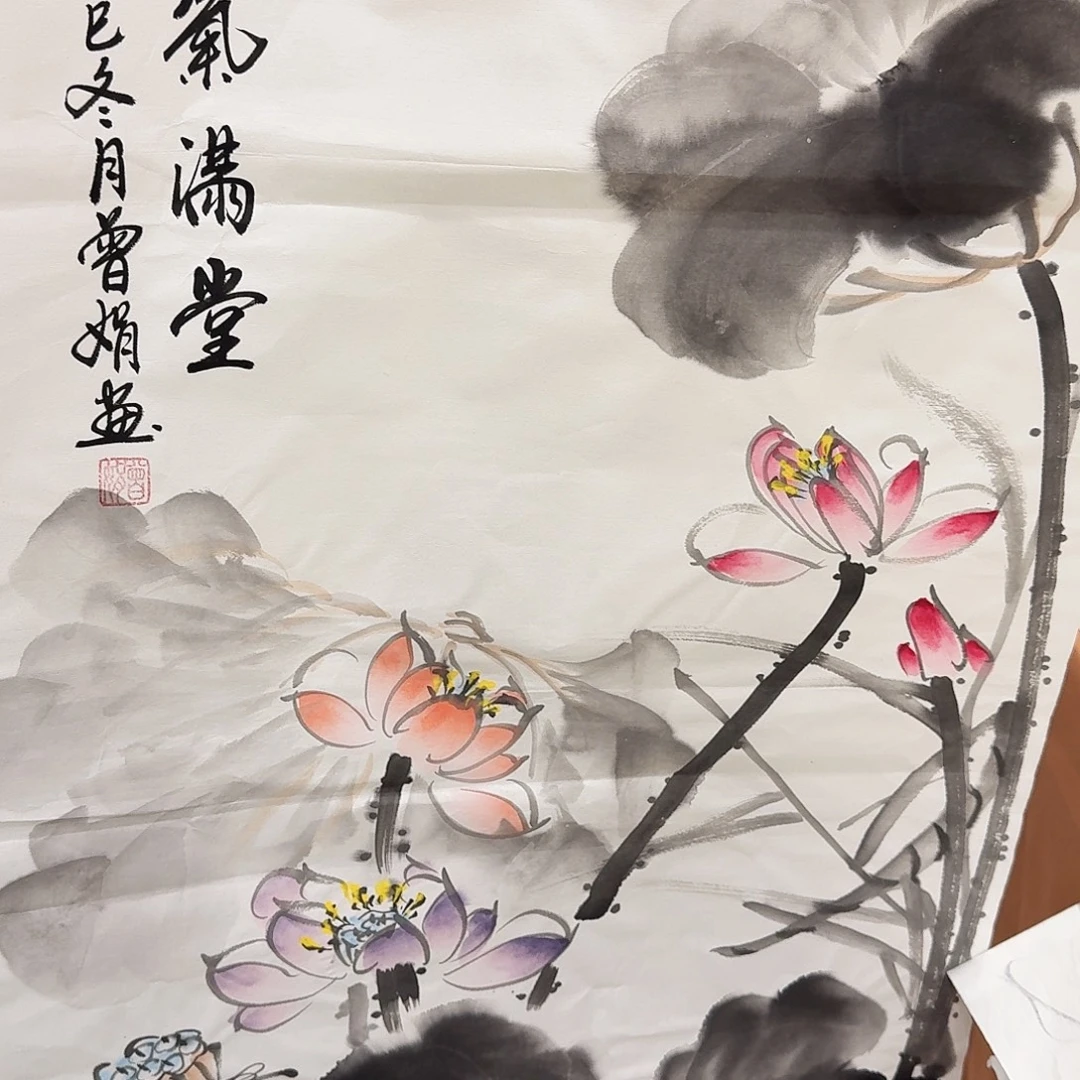 氣滿堂
巳冬月曾娟畫